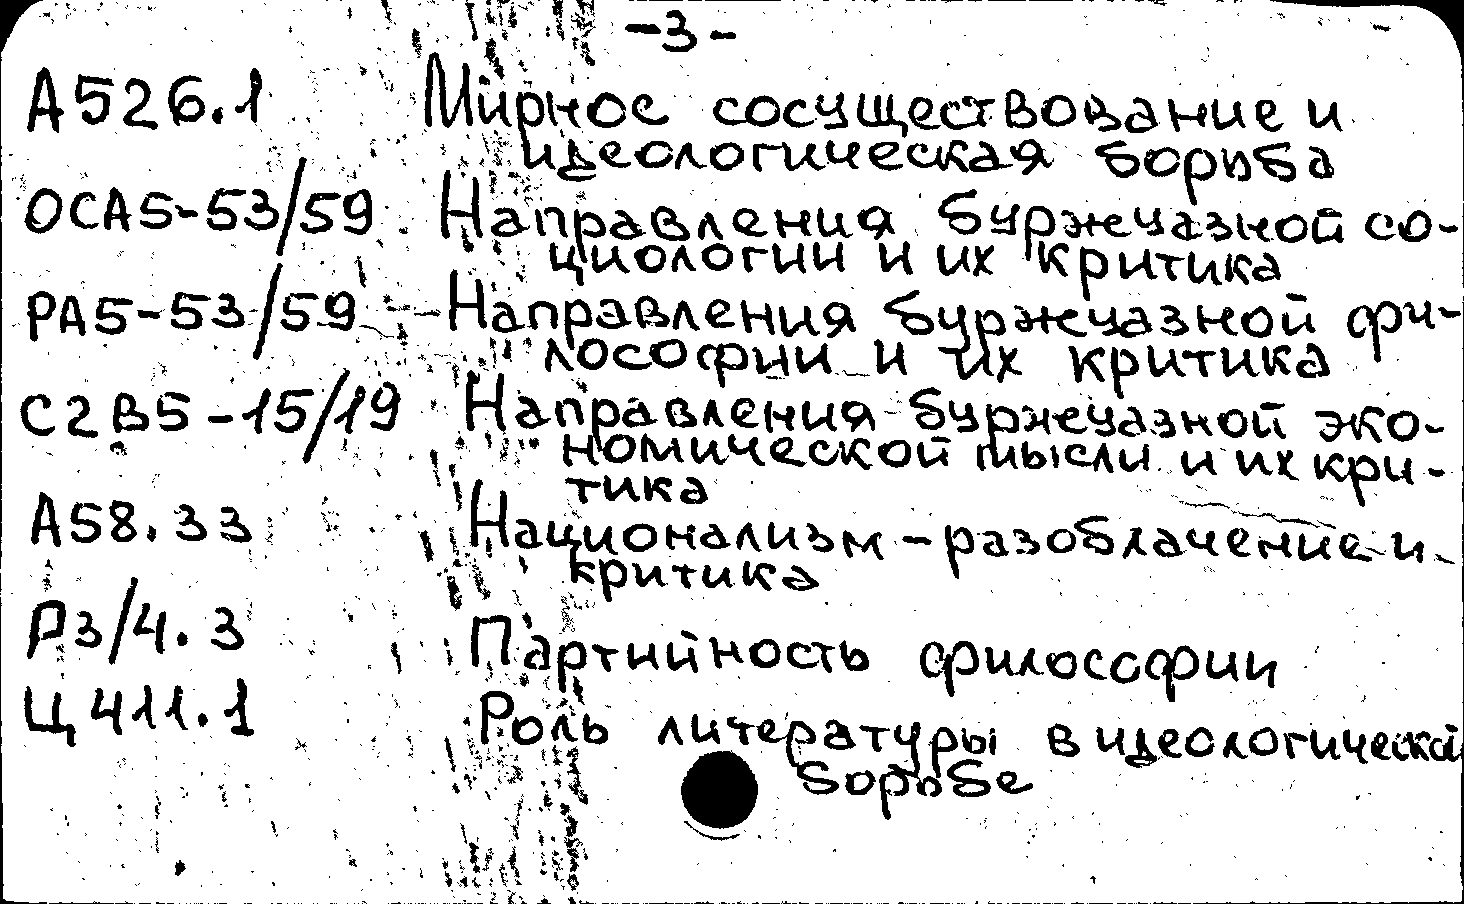 -3-
А526.1 Мирное сосуществование и
идеологическая борьба
ОСА5-53/59 Направления буржуазной со-
циологии и их критика
РА5-53/59 Направления буржуазной фи-
лософии и их критика
С2В5-15/19 Направления буржуазной эко-
номической мысли и их кри-
тика
А58.33 Национализм - разоблачение и
критика
Р3/4.3 Партийность философии
Ц411.1 Роль литературы в идеологической
борьбе